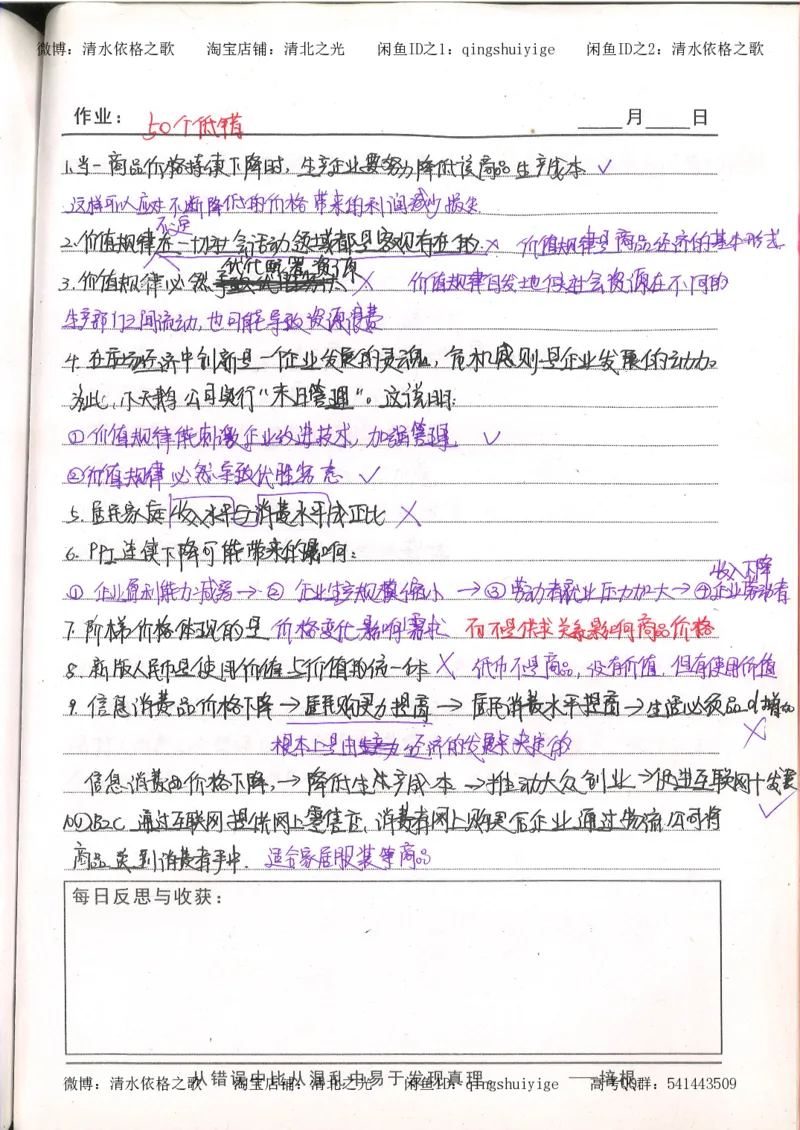 微博：清水依格之歌　　淘宝店铺：清北之光　　闲鱼ID之1：qingshuiyige　　闲鱼ID之2：清水依格之歌
作业：　50个低错　　月　　日
1.当一商品价格持续下降时，生产企业要努力降低该商品生产成本 ✓
这样可以应对不断降低的价格带来的利润减少损失
不是
2.价值规律在一切社会活动领域都是客观存在的 × 价值规律是商品经济的基本形式
优化配置资源
3.价值规律必然 × 价值规律自发地使社会资源在不同的
生产部门之间流动，也可能导致资源浪费
4.在市场经济中创新是一个企业发展的灵魂，危机感则是企业发展的动力。
为此，小天鹅公司实行“末日管理”。这说明：
①价值规律能刺激企业改进技术，加强管理 ✓
②价值规律必然导致优胜劣态 ✓
5.居民家庭收入水平与消费水平成正比 ×
6.PPI连续下降可能带来的影响：
收入下降
①企业盈利能力减弱→②企业生产规模缩小→③劳动者就业压力加大→④企业劳动者
7.阶梯价格体现的是价格变化影响需求 而不是供求关系影响商品价格
8.新版人民币是使用价值与价值的统一体 × 纸币不是商品，没有价值，但有使用价值
9.信息消费品价格下降→居民购买力提高→居民消费水平提高→生活必须品d增加
×
根本上是由经济的发展来决定的
信息消费品价格下降，→降低生产成本→推动大众创业→促进互联网+发展
✓
10.①B2C 通过互联网提供网上零售店，消费者网上购买后企业通过物流公司将
商品送到消费者手中. 适合家居服装等商品
每日反思与收获：
从错误中比从混乱中易于发现真理。　——培根
微博：清水依格之歌　　淘宝店铺：清北之光　　闲鱼ID：qingshuiyige　　高考QQ群：541443509